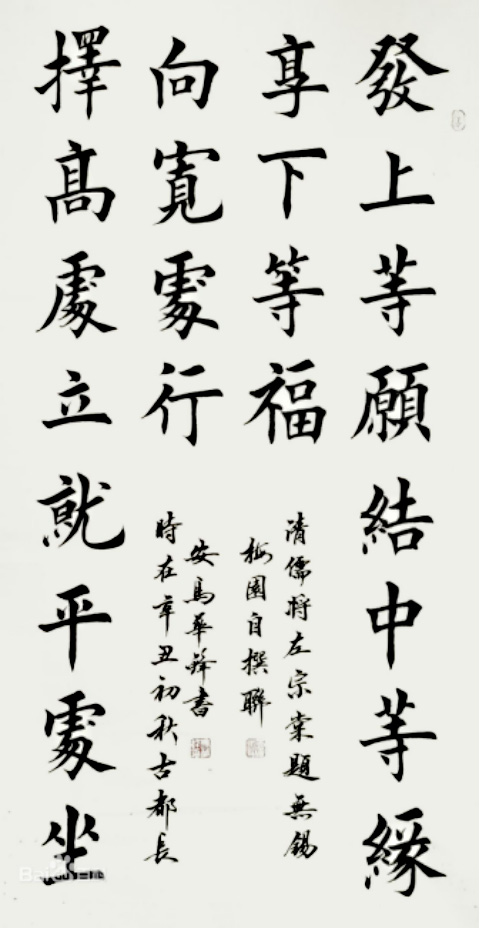 發上等願結中等緣
享下等福
向寬處行
擇高處立就平處坐
清儒將左宗棠題無錫
梅園自撰聯
時在辛丑初秋古都長
安馬華鋒書